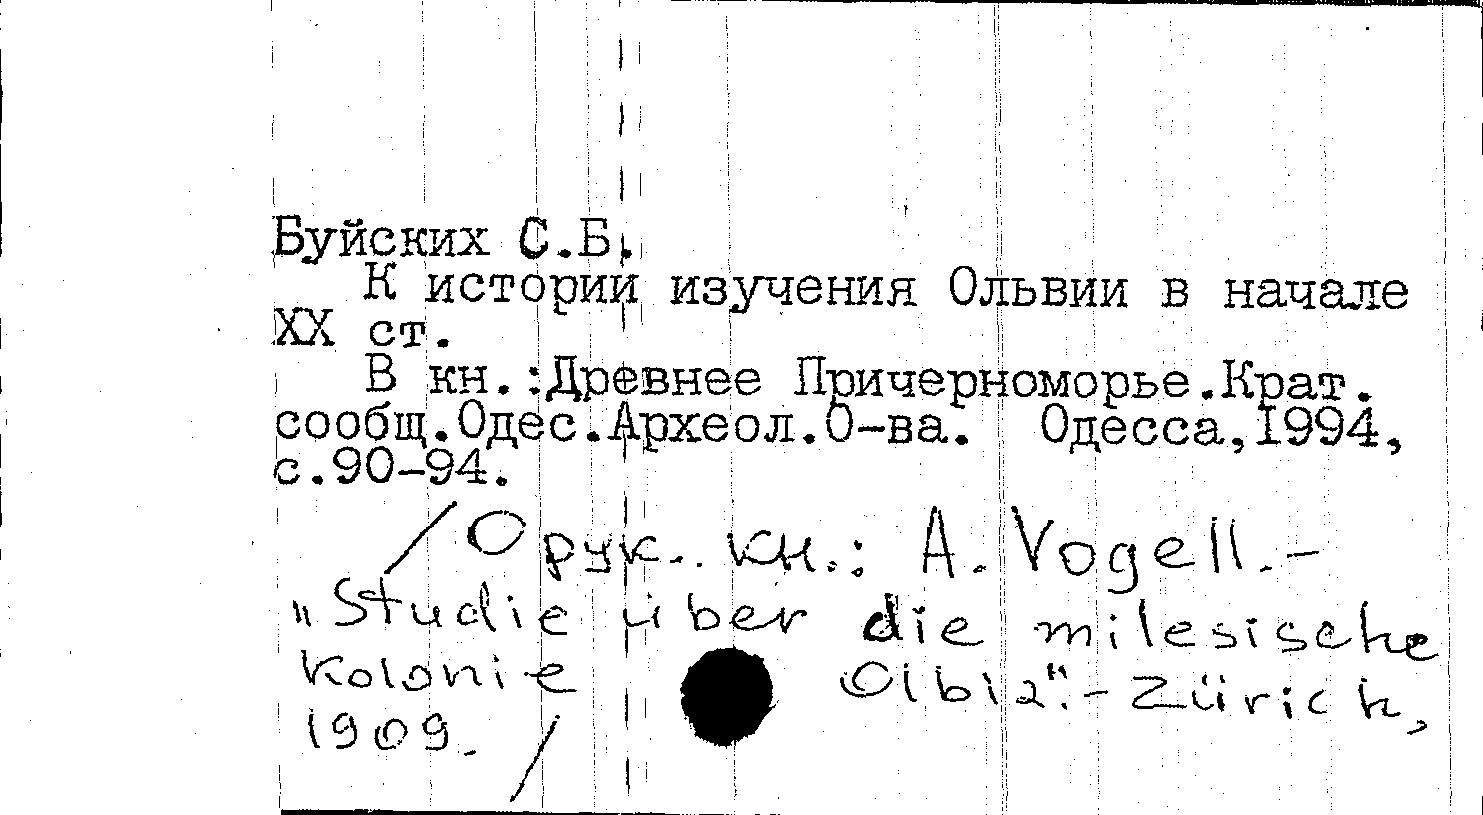 Буйских С.Б.
К истории изучения Ольвии в начале
XX ст.
В кн.:Древнее Причерноморье.Крат.
сообщ.Одес.Археол.О-ва. Одесса,I994,
с.90-94.
/О рук. кн.: A. Vogell. –
„Studie über die milesische
Kolonie Olbia". – Zürich,
1909. /